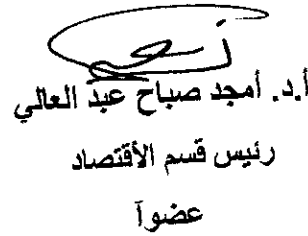 أ.د. أمجد صباح عبد العالي
رئيس قسم الأقتصاد
عضوآ